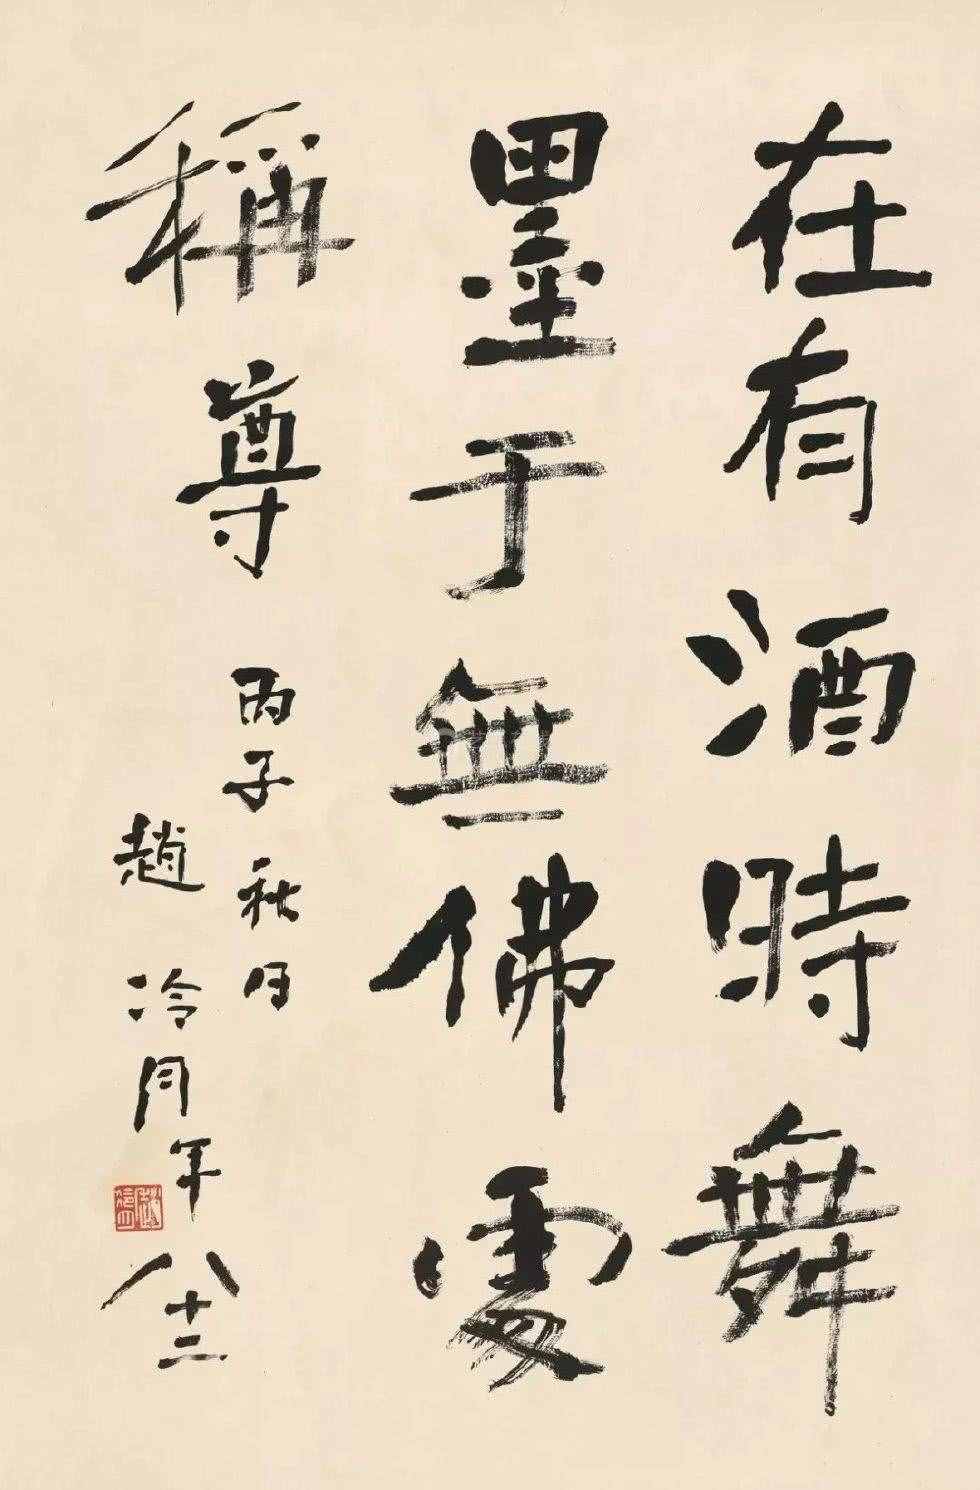 在有酒時舞
墨于無佛處
稱尊 丙子秋月
趙冷月年八十二